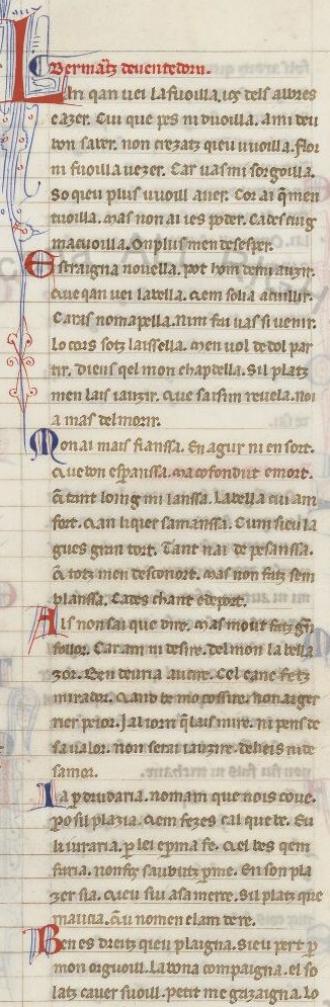 Bernartz deuentedorn.
Lan qan uei la fuoilla. ios dels albres
cazer. Cui que pes ni duoilla. ami deu
bon saber. non crezatz queu uuoilla. flor
ni fuoilla uezer. Car uas mi sorgoilla.
So queu plus uuoill auer. Cor ai q̃ men
tuoilla. mas non ai ies poder. Cades cuig
macuoilla. On plus men desesper.
Estraigna nouella. pot hom demi auzir.
Que qan uei la bella. qem solia acuillir.
Caras nom apella. nim fai uas si uenir.
Lo cors sotz laissella. men uol de dol par
tir. Dieus qel mon chapdella. Sil platz
men lais iauzir. Que saissim reuela. noi
a mas del morir.
Non ai mais fianssa. En agur ni en sort.
Que bon esperanssa. ma cofondut e mort.
Q̃ tant loing mi lanssa. La bella cui am
fort. Qan li quer samanssa. Cum sieu la
gues gran tort. Tant nai de pesanssa.
Q̃ totz men desconort. mas non fatz sem
blanssa. Cades chant e deport.
Als non sai que dire. mas mout fatz grã
follor. Car am ni desire. del mon la bella
zor. Ben deuria aucire. Cel canc fetz
mirador. Qand be mo cossire. non ai ger
rer peior. Ja l iorn q̃ las mire. ni pens de
sa ualor. non serai iauzire. de lieis ni de
samor.
Ia ꝑ drudaria. nom am que nois coue.
Po sil plazia. qem fezes cal que be. Eu
li iuraria. ꝑ lei e ꝑ ma fe. Qel bes qem
faria. non fos saubutz ꝑ me. En son pla
zer sia. Queu sui a sa merce. Sil platz que
maucia. Q̃u nomen clam de re.
Ben es dreitz queu plaigna. Sieu pert ꝑ
mon orguoill. La bona compaigna. el so
latz cauer suoill. Petit me gazaigna. Lo